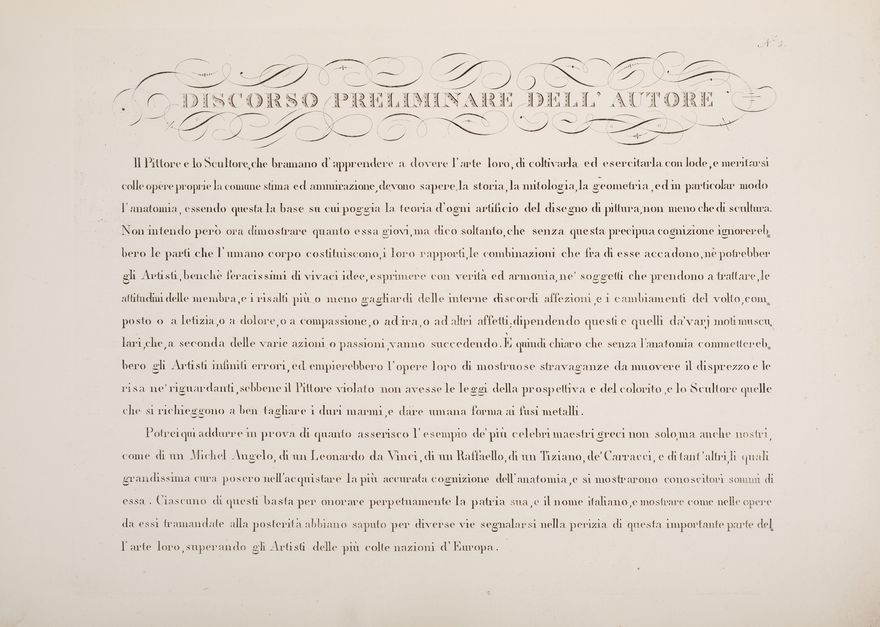 N.º 3.
DISCORSO PRELIMINARE DELL' AUTORE
Il Pittore e lo Scultore, che bramano d'apprendere a dovere l'arte loro, di coltivarla ed esercitarla con lode, e meritarsi
colle opere proprie la comune stima ed ammirazione, devono sapere, la storia, la mitologia, la geometria, ed in particolar modo
l'anatomia, essendo questa la base su cui poggia la teoria d'ogni artificio del disegno di pittura, non meno che di scultura.
Non intendo però ora dimostrare quanto essa giovi, ma dico soltanto, che senza questa precipua cognizione ignorereb„
bero le parti che l'umano corpo costituiscono, i loro rapporti, le combinazioni che fra di esse accadono, nè potrebber
gli Artisti, benchè feracissimi di vivaci idee, esprimere con verità ed armonia, ne' soggetti che prendono a trattare, le
attitudini delle membra, e i risalti più o meno gagliardi delle interne discordi affezioni, e i cambiamenti del volto, com„
posto o a letizia, o a dolore, o a compassione, o ad ira, o ad altri affetti, dipendendo questi e quelli da' varj moti muscu„
lari, che, a seconda delle varie azioni o passioni, vanno succedendo. È quindi chiaro che senza l'anatomia commettereb„
bero gli Artisti infiniti errori, ed empierebbero l'opere loro di mostruose stravaganze da muovere il disprezzo e le
risa ne' riguardanti, sebbene il Pittore violato non avesse le leggi della prospettiva e del colorito, e lo Scultore quelle
che si richieggono a ben tagliare i duri marmi, e dare umana forma ai fusi metalli.
Potrei qui addurre in prova di quanto asserisco l'esempio de' più celebri maestri greci non solo, ma anche nostri,
come di un Michel Angelo, di un Leonardo da Vinci, di un Raffaello, di un Tiziano, de' Carracci, e di tant'altri, li quali
grandissima cura posero nell'acquistare la più accurata cognizione dell'anatomia, e si mostrarono conoscitori sommi di
essa. Ciascuno di questi basta per onorare perpetuamente la patria sua, e il nome italiano, e mostrare come nelle opere
da essi tramandate alla posterità abbiano saputo per diverse vie segnalarsi nella perizia di questa importante parte del„
l'arte loro, superando gli Artisti delle più colte nazioni d'Europa.